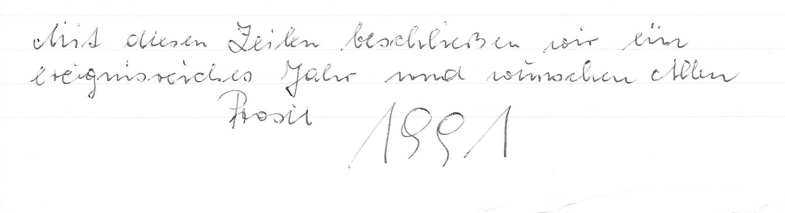 Mit diesen Zeilen beschließen wir ein
ereignisreiches Jahr und wünschen Allen
Prosit 1991